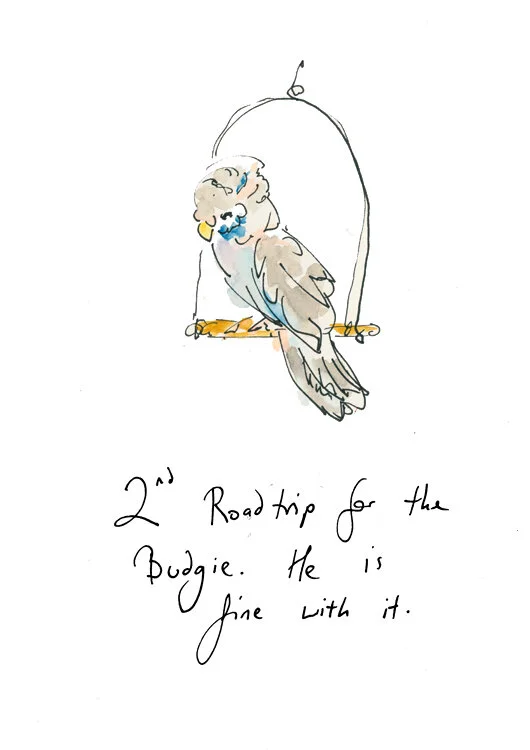 2nd Roadtrip for the
Budgie. He is
fine with it.